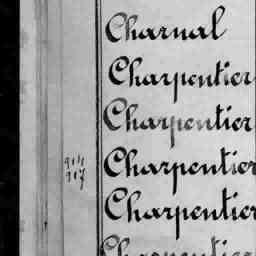 Charnal
Charpentier
Charpentier
Charpentier
917
Charpentier
Charpentier